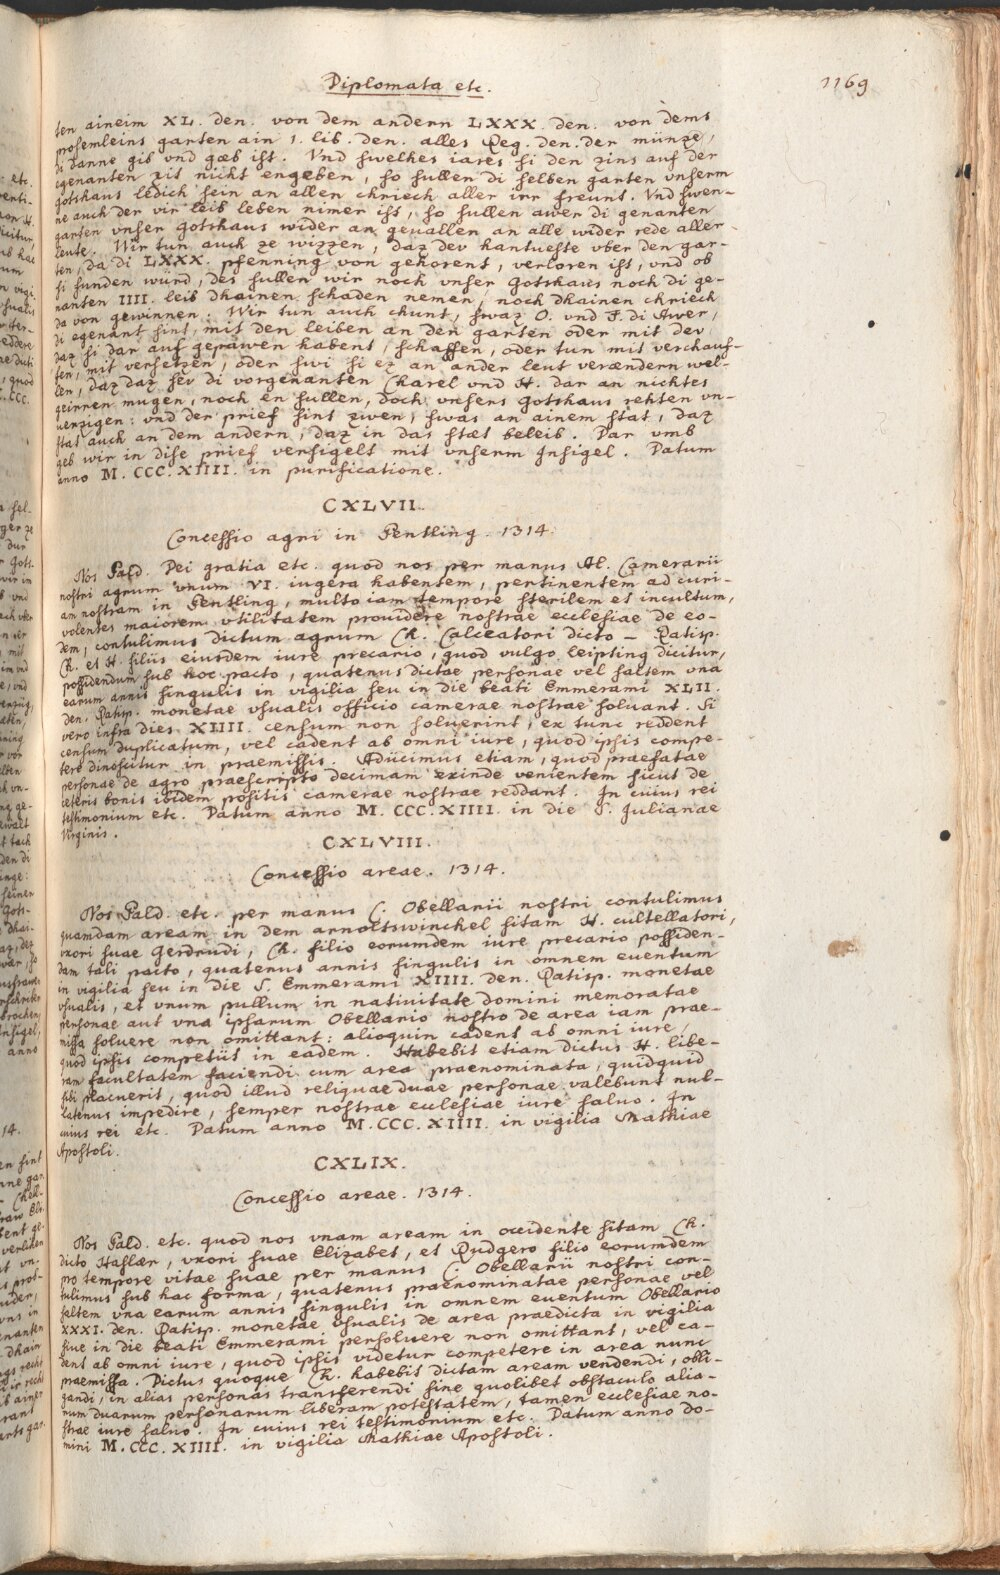 Diplomata etc.
1169
ten aineim XL. den. von dem andern LXXX. den. von dems
prosemleins garten ain 1. lib. den. alles Reg. den. der münze,
di danne gib vnd gæb ist. Vnd swelhes iares si den zins auf der
egenanten zit nicht engeben, so sullen di selben garten vnserm
gotshaus ledich sein an allen chriech aller irr freunt. Vnd swen-
ne auch der vir leib leben nimer ist, so sullen awer di genanten
garten vnser gotshaus wider an geuallen an alle wider rede aller-
leute. Wir tun auch ze wizzen, daz dev hantueste vber den gar-
ten, da di LXXX. phenning von gehorent, verloren ist, vnd ob
si funden würd, des sullen wir noch vnser gotshaus noch di ge-
nanten IIII. leib dhainen schaden nemen, noch dhainen chriech
da von gewinnen. Wir tun auch chunt, swaz O. vnd F. di Awer,
di egenant sint, mit den leiben an den garten oder mit dev,
daz si dar auf gepawen habent, schaffen, oder tun mit verchauf-
fen, mit versetzen, oder swi si ez an ander leut verændern wel-
len, daz daz sev di vorgenanten Charel vnd H. dar an nichtes
geirren mugen, noch en sullen, doch vnsers gotshaus rehten vn-
uerzigen: vnd der prief sint zwen, swas an ainem stat, daz
stat auch an dem andern, daz in das stæt beleib. Dar vmb
geb wir in dise prief versigelt mit vnserm Insigel. Datum
anno M. CCC. XIIII. in purificatione.
CXLVII.
Concessio agri in Pentling. 1314.
Nos Bald. Dei gratia etc. quod nos per manus Al. Camerarii
nostri agrum vnum VI. iugera habentem, pertinentem ad curi-
am nostram in Pentling, multo iam tempore sterilem et incultum,
volentes maiorem vtilitatem prouidere nostrae ecclesiae de eo-
dem, contulimus dictum agrum Ch. Calceatori dicto – Ratisp.
Ch. et H. filiis eiusdem iure precario, quod vulgo leipting dicitur,
possidendum sub hoc pacto, quatenus dictae personae vel saltem vna
earum annis singulis in vigilia seu in die beati Emmerami XLII.
den. Ratisp. monetae vsualis officio camerae nostrae soluant. Si
vero infra dies XIIII. censum non soluerint, ex tunc reddent
censum duplicatum, vel cadent ab omni iure, quod ipsis compe-
tere dinoscitur in praemissis. Adiicimus etiam, quod praefatae
personae de agro praescripto decimam exinde venientem sicut de
ceteris bonis ibidem positis camerae nostrae reddant. In cuius rei
testimonium etc. Datum anno M. CCC. XIIII. in die S. Julianae
Virginis.
CXLVIII.
Concessio areae. 1314.
Nos Bald. etc. per manus C. Obellarii nostri contulimus
quamdam aream in dem arnoltswinchel sitam H. cultellatori,
vxori suae Gerdrudi, Ch. filio eorumdem iure precario possiden-
dam tali pacto, quatenus annis singulis in omnem euentum
in vigilia seu in die S. Emmerami XIIII. den. Ratisp. monetae
vsualis, et vnum pullum in natiuitate domini memoratae
personae aut vna ipsarum Obellario nostro de area iam prae-
missa soluere non omittant: alioquin cadent ab omni iure,
quod ipsis competiit in eadem. Habebit etiam dictus H. libe-
ram facultatem faciendi cum area praenominata, quidquid
sibi placuerit, quod illud reliquae duae personae valebunt nul-
latenus impedire, semper nostrae ecclesiae iure saluo. In
cuius rei etc. Datum anno M. CCC. XIIII. in vigilia Mathiae
Apostoli.
CXLIX.
Concessio areae. 1314.
Nos Bald. etc. quod nos vnam aream in occidente sitam Ch.
dicto Haslær, vxori suae Elizabet, et Rudgero filio eorumdem
pro tempore vitae suae per manus C. Obellarii nostri con-
tulimus sub hac forma, quatenus praenominatae personae vel
saltem vna earum annis singulis in omnem euentum Obellario
XXXI. den. Ratisp. monetae vsualis de area praedicta in vigilia
siue in die beati Emmerami persoluere non omittant, vel ca-
dent ab omni iure, quod ipsis videtur competere in area nunc
praemissa. Dictus quoque Ch. habebit dictam aream vendendi, obli-
gandi, in alias personas transferendi sine quolibet obstaculo alia-
rum duarum personarum liberam potestatem, tamen ecclesiae no-
strae iure saluo. In cuius rei testimonium etc. Datum anno do-
mini M. CCC. XIIII. in vigilia Mathiae Apostoli.